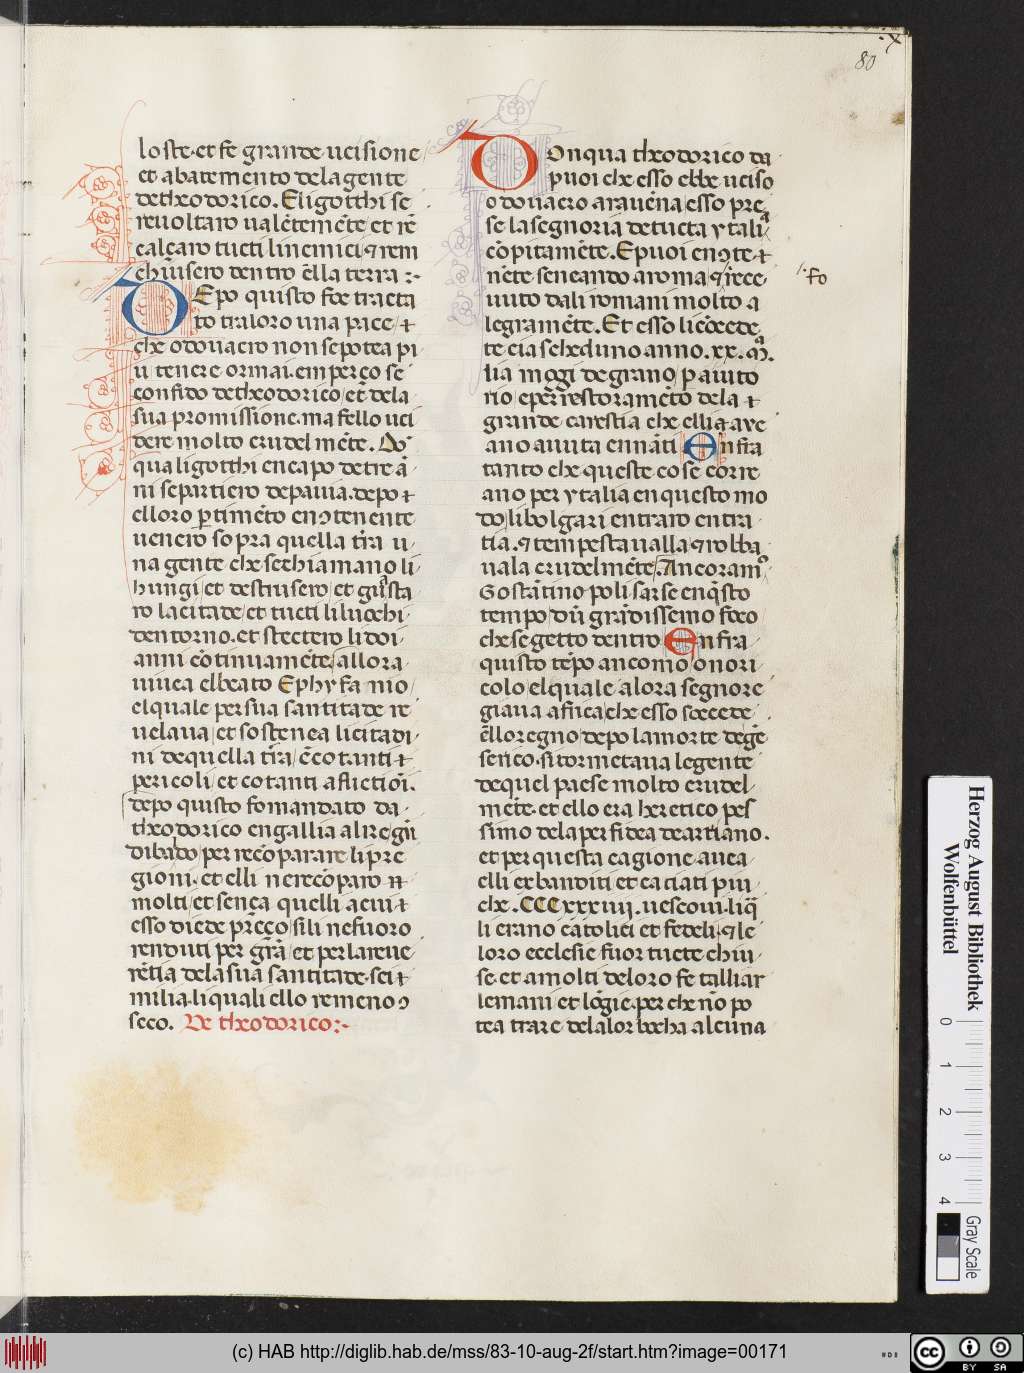 80
loste·et fe grande ucisione
et abatemento dela gente
de theodorico. E li gotthi se
reuoltaro ualētemēte et rē
calçaro tucti li nemici ⁊ rem
chiusero dentro ēlla terra :·
DEpo quisto foe tracta
to tra loro una pace ·
che odouacro non se potea pi
u tenere ormai. emperço se
confido de theodorico et dela
sua promissione. ma fello uci
dere molto crudel mēte. Do
qua li gotthi en capo de tre ā
ni se partiero de pauia. depo
elloro ptimēto en ↄtenente
uenero sopra quella tr̄ra u
na gente che se chiamano li
hungi et destrusero et guasta
ro la citade et tucti li luochi
dentorno. et stectero li doi
anni cōtinuamēte allora
uiuea el beato Ephyfanio
el quale per sua santitade re
uelaua et sostenea li citadi
ni de quella tr̄ra ē cotanti
pericoli et cotanti afliction̄i.
depo quisto fo mandato da
theodorico en gallia al re gū
dibado per recōparare li pre
gioni. et elli ne recōparo
molti et sença quelli a cui
esso diede preço si li ne fuoro
renduti per gr̄a et per la reue
rētia dela sua santitade. sei
milia. li quali ello remeno ↄ
seco. De theodorico :·
DOnqua theodorico da
puoi che esso ebbe uciso
odouacro a rauēna esso pre
se la segnoria de tucta ytali
cōpitamēte. E puoi en ↄte
nēte se n e ando a roma ⁊ rece
uuto dali romani molto a
legramēte. Et esso li cōcede
te ciascheduno anno .xx. m̄.
lia mogi de grano p aiuto
rio e per restoramēto dela
grande carestia che ellia aue
ano auuta ennāti Enfra
tanto che queste cose corre
ano per ytalia en questo mo
do li bolgari entraro en tra
tia. ⁊ tempestaualla ⁊ robba
uala crudelmēte Ancoram̄
Gostātinopoli s arse en q̄sto
tempo d un grādissemo foco
che se getto dentro Enfra
quisto tēpo anco mo onori
colo el quale alora segnore
giaua africa che esso socede
ēllo regno depo la morte de gē
serico. si tormētaua le gente
de quel paese molto crudel
mēte. et ello era heretico pes
simo dela perfidea de arriano.
et per questa cagione auea
elli exbanditi et caciati piu
che .CCCxxxiiii. uescoui. liq̄
li erano catolici et fedeli. ⁊ le
loro ecclesie fuor tucte chiu
se. et a molti de loro fe talliar
le mani et lōgie. per che nō po
tea trare dela lor boccha alcuna
fo
Herzog August Bibliothek
Wolfenbüttel
0 1 2 3 4
Gray Scale
(c) HAB http://diglib.hab.de/mss/83-10-aug-2f/start.htm?image=00171
CC BY SA